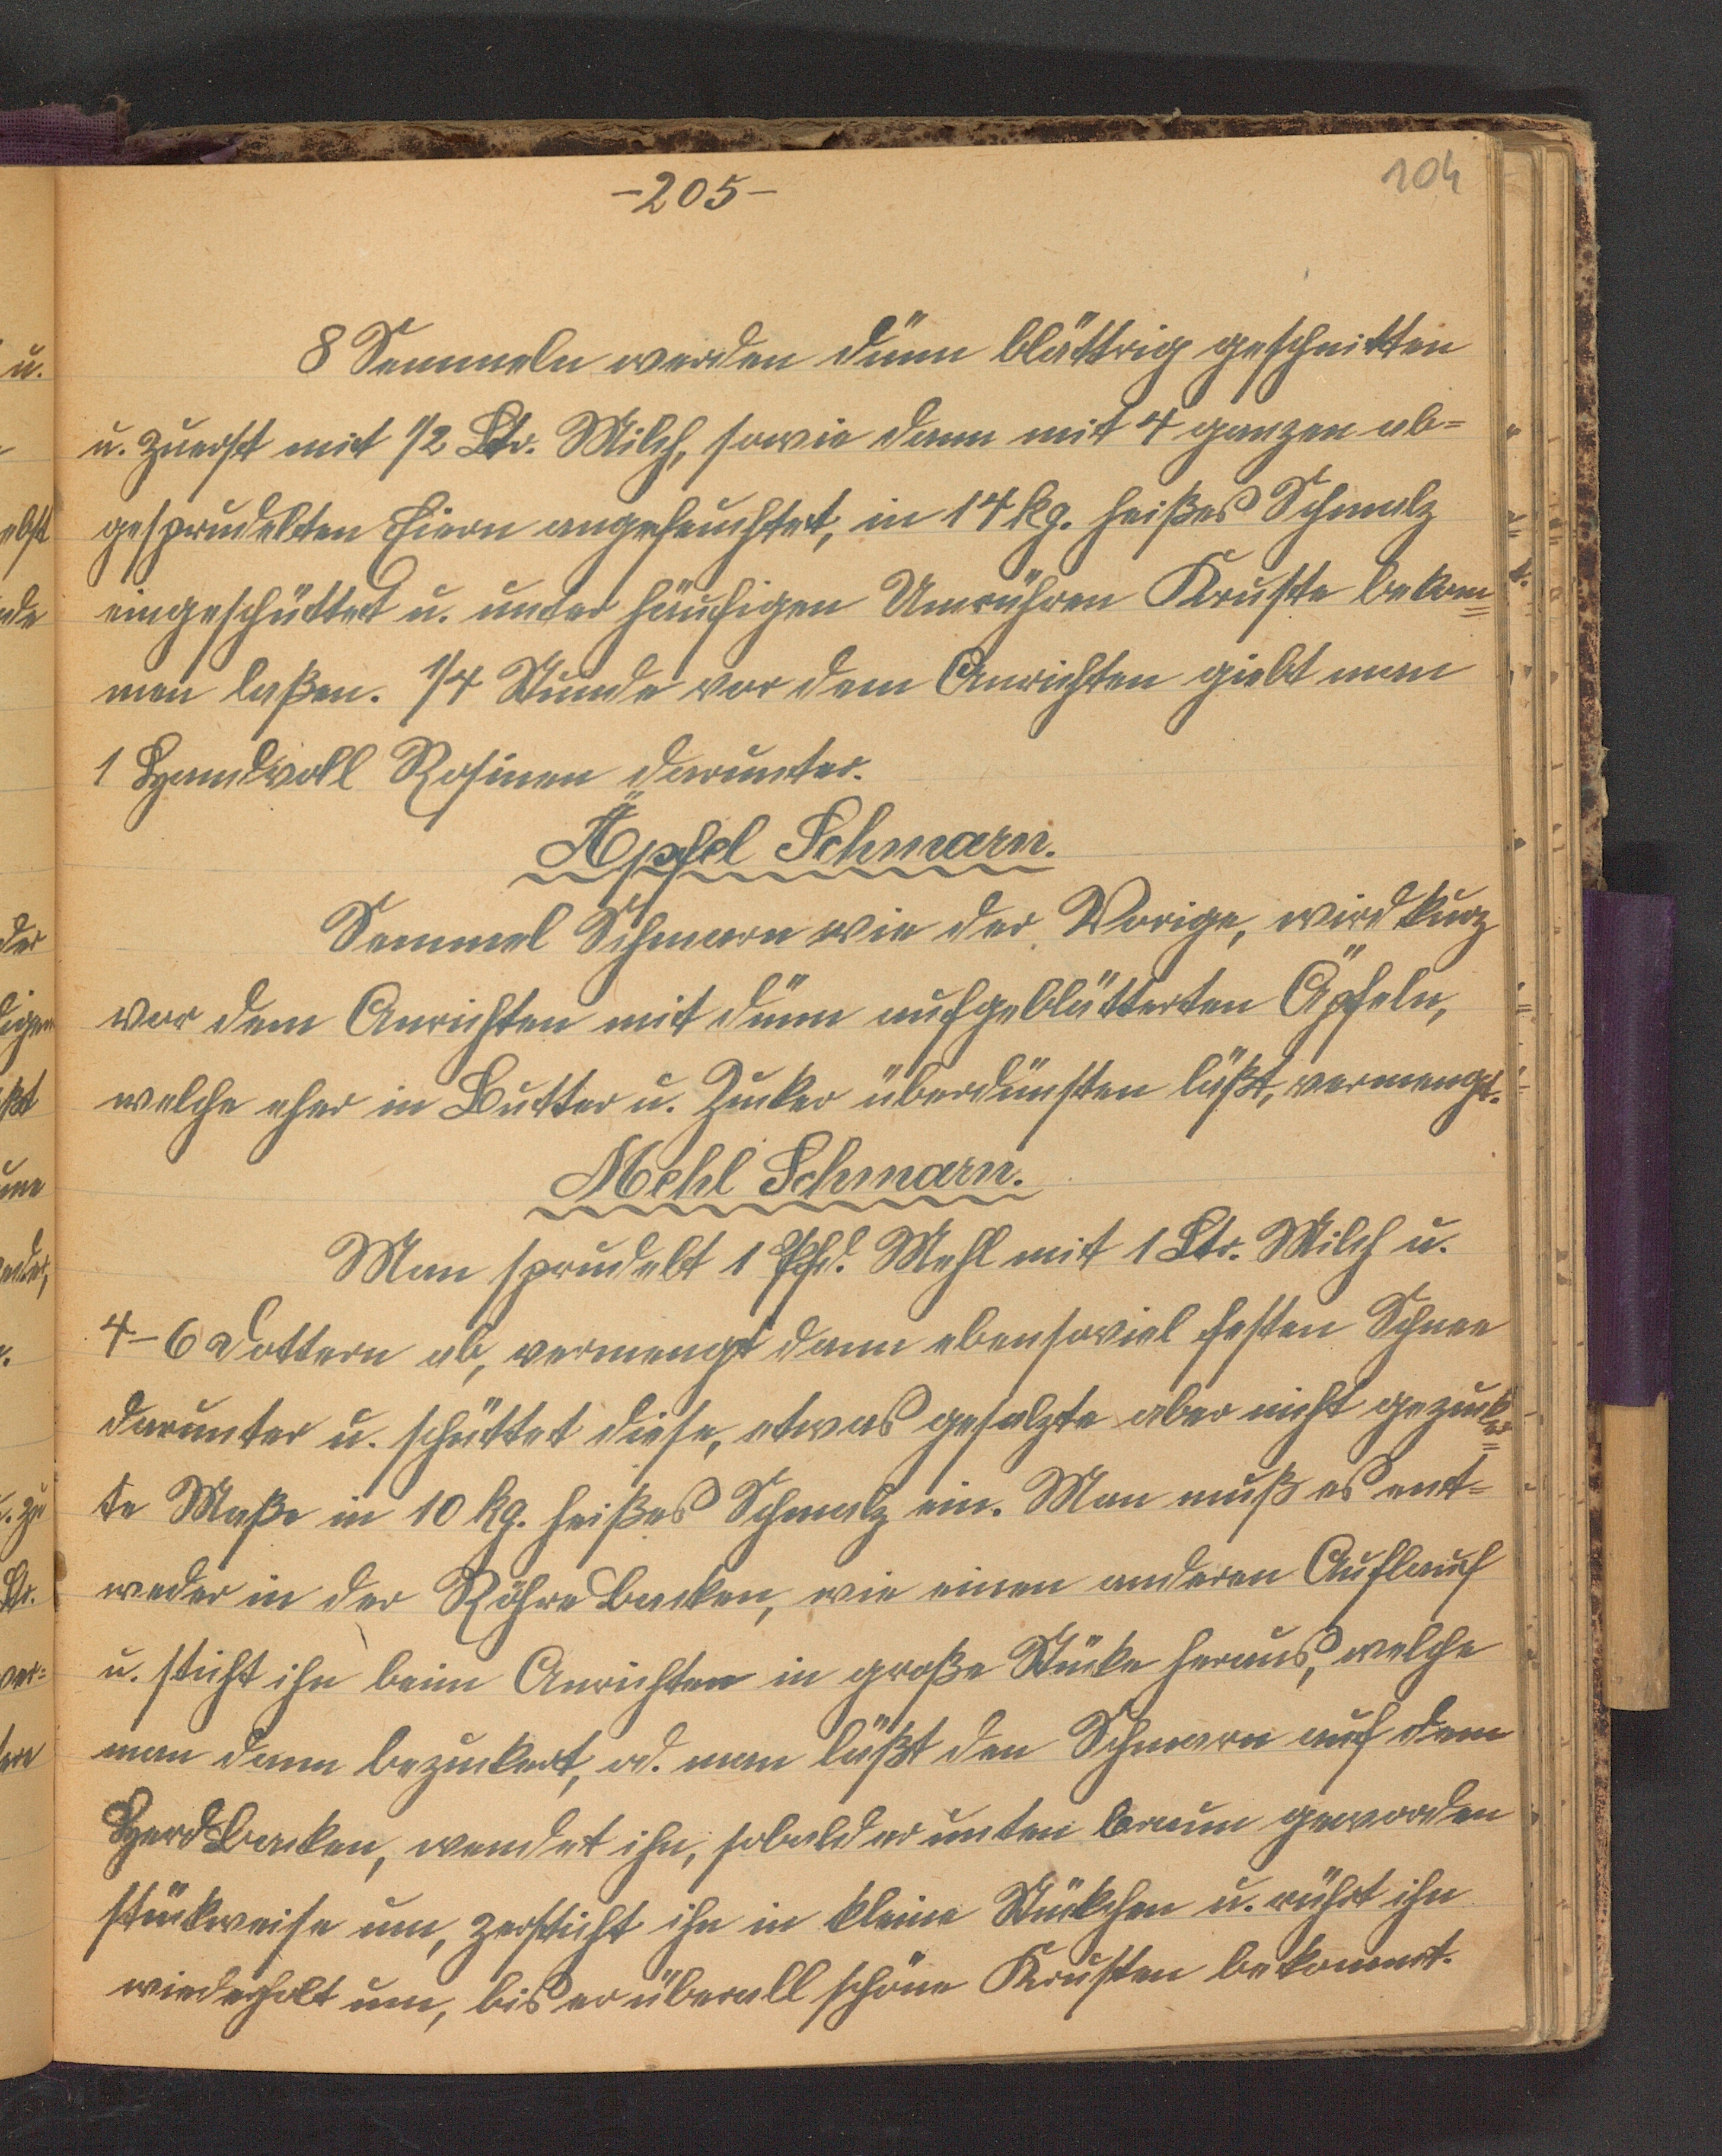 -205-
104
8 Semmeln werden dünn blättrig geschnitten
u. zuerst mit 1/2 Ltr. Milch, sowie dann mit 4 ganzen ab=
gesprudelten Eiern angefeuchtet, in 14 kg. heißes Schmalz
eingeschüttet u. unter häufigen Umrühren Kruste bekom=
men laßen. 1/4 Stunde vor dem Anrichten giebt man
1 Handvoll Rosinen darunter.
Äpfel Schmarn.
Semmel Schmarn wie der Vorige, wird kurz
vor dem Anrichten mit dünn aufgeblätterten Äpfeln,
welche eher in Butter u. Zucker überdünsten läßt, vermengt.
Mehl Schmarn.
Man sprudelt 1 Pfd. Mehl mit 1 Ltr. Milch u.
4-6 Dottern ab, vermengt dann ebensoviel festen Schnee
darunter u. schüttet diese, etwas gesalzte aber nicht gezucker=
te Maße in 10 kg. heißes Schmalz ein. Man muß es ent=
weder in der Röhre backen, wie einen anderen Auflauf
u. sticht ihn beim Anrichten in große Stücke heraus, welche
man dann bezuckert, od. man läßt den Schmarn auf dem
Herd backen, wendet ihn, sobald er unten braun geworden
stückweise um, zersticht ihn in kleine Stückchen u. rührt ihn
wiederholt um, bis er überall schöne Krusten bekommt.
u.
ebst
nde
der
digen
ßt
ader,
u. zu
Ltr.
ver=